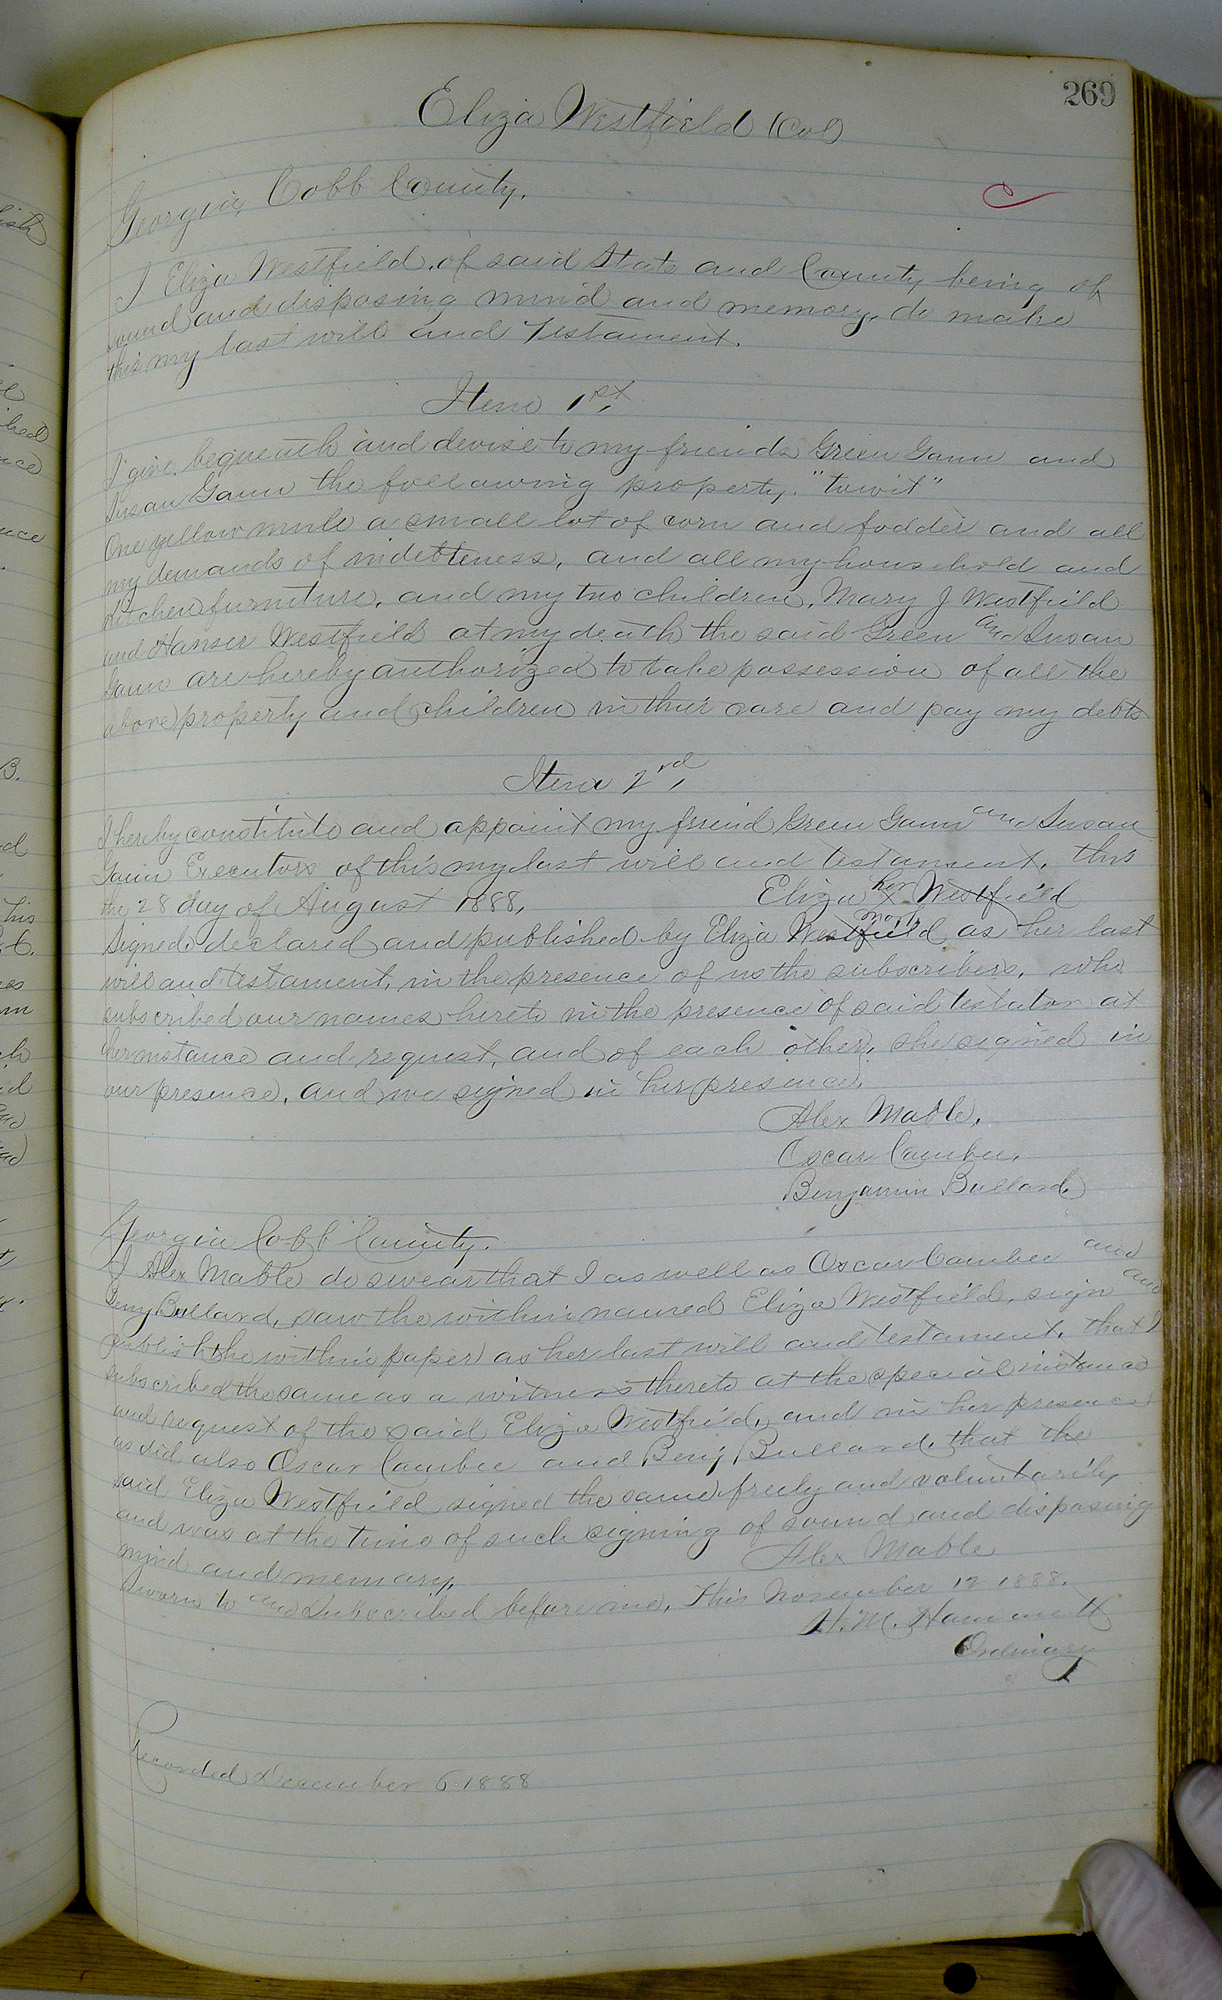 269
Eliza Westfield (Col)
Georgia, Cobb County,
I Eliza Westfield, of said State and County being of
sound and disposing mind and memory, do make
this my last will and Testament.
Item 1st,
I give, bequeath and devise to my friends Green Gann and
Susan Gann the following property, "towit"
One yellow mule a small lot of corn and fodder and all
my demands of indebteness, and all my household and
kitchen furniture, and my two children, Mary J Westfield
and Hanser Westfield at my death the said Green and Susan
Gann are hereby authorized to take possession of all the
above property and children in their care and pay my debts
Item 2nd,
I hereby constitute and appoint my friend Green Gann and Susan
Gann Executors of this my last will and testament, this
the 28 day of August 1888, Eliza her x mark Westfield
Signed, declared and published by Eliza Westfield as her last
will and testament, in the presence of us the subscribers, who
subscribed our names hereto in the presence of said testator at
her instance and request, and of each other, she signed in
our presence, and we signed in her presence,
Alex Mable,
Oscar Cambee,
Benjamin Bullard,
Georgia Cobb County,
I Alex Mable do swear that I as well as Oscar Cambee and
Benj Bullard, saw the within named Eliza Westfield, sign and
publish the within paper as her last will and testament, that I
subscribed the same as a witness thereto at the special instance
and request of the said Eliza Westfield, and in her presence
as did also Oscar Cambee and Benj Bullard, that the
said Eliza Westfield signed the same freely and voluntarily
and was at the time of such signing of sound and disposing
mind and memory, Alex Mable
Sworn to and Subscribed before me, This November 12 1888.
H. M. Hammett
Ordinary
Recorded December 6. 1888